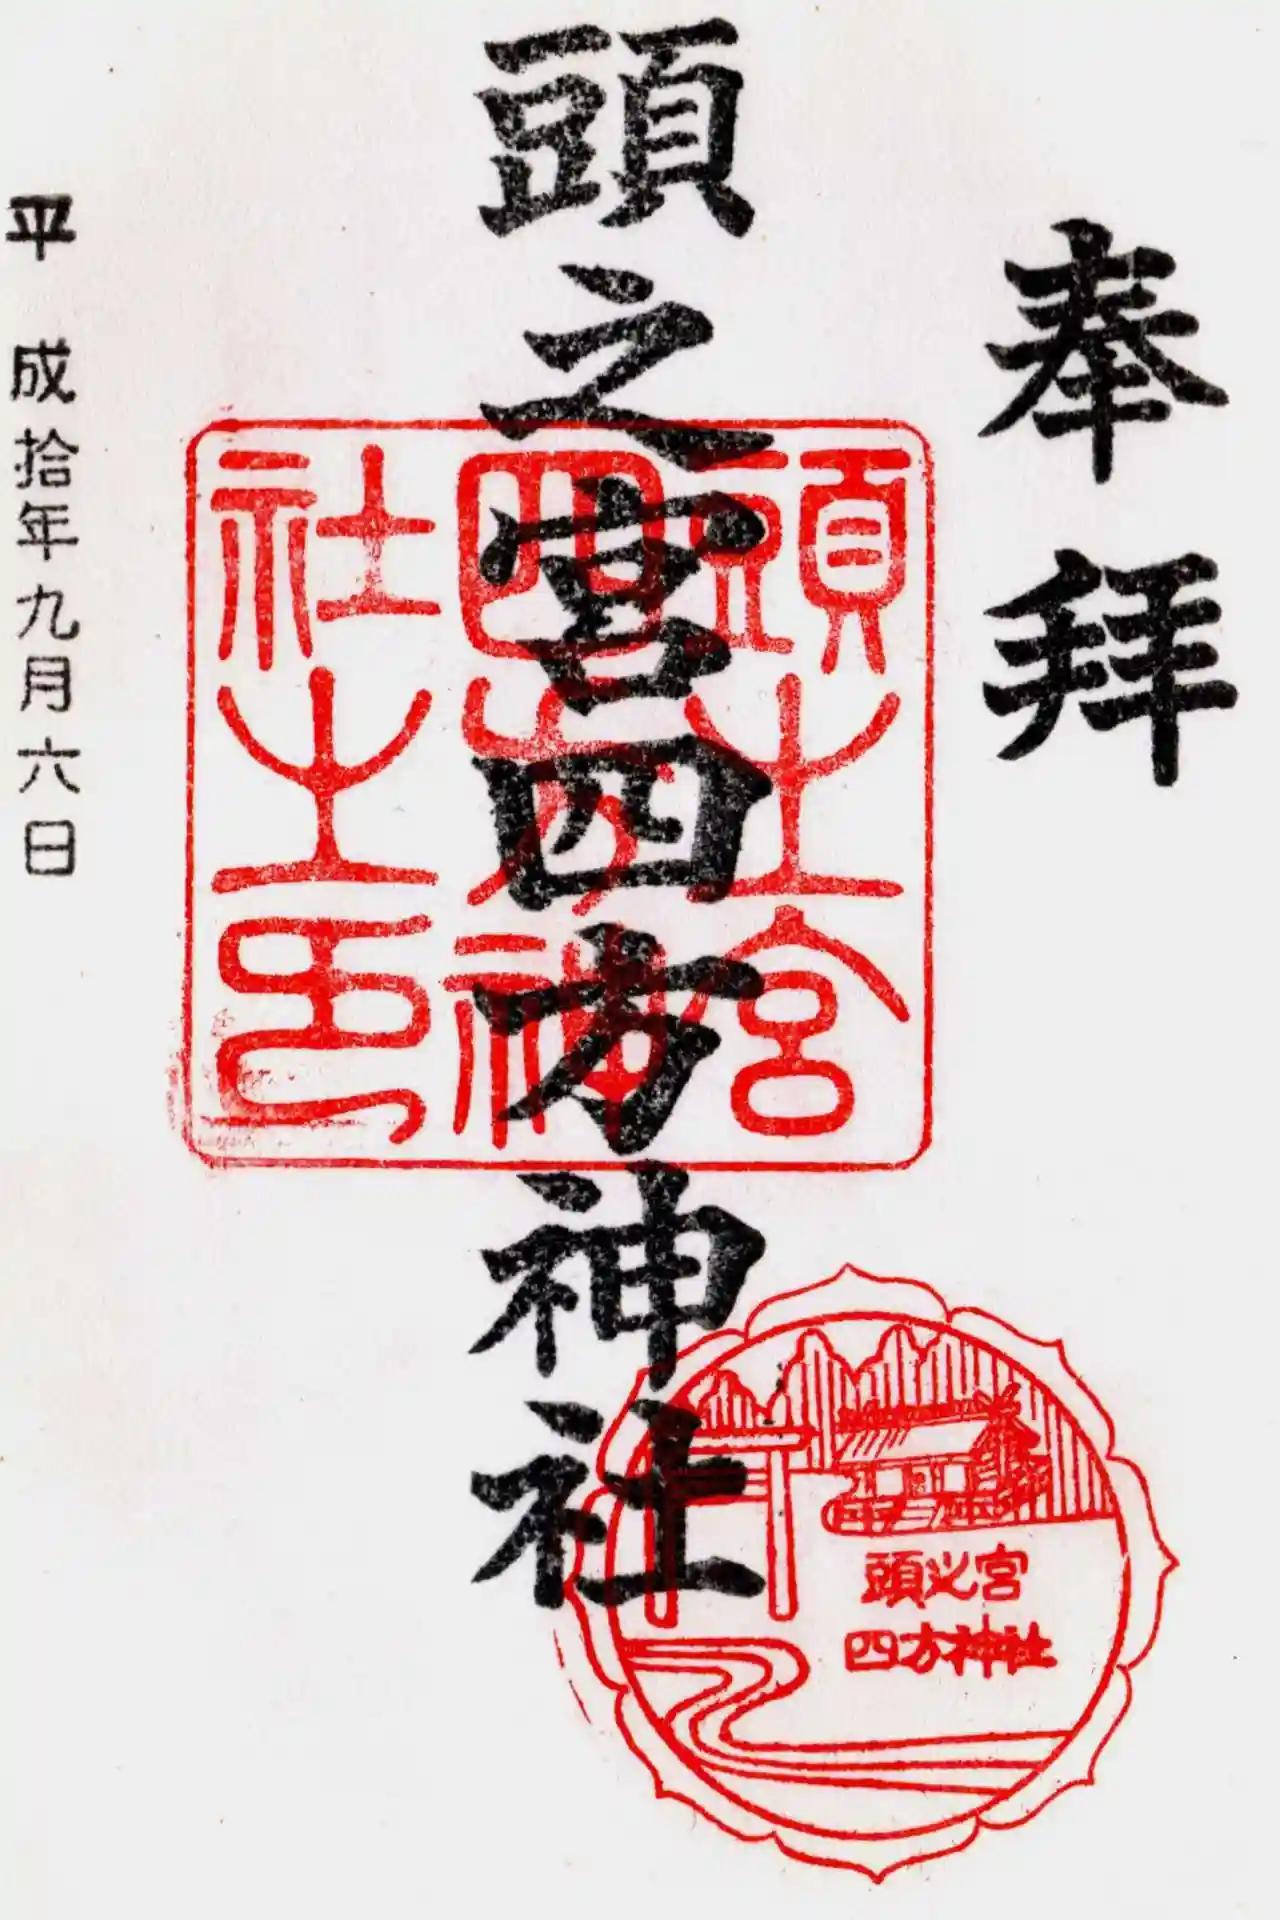 奉拝
頭之宮四方神社
頭之宮
四方神
社之印
平成拾年九月六日
頭之宮
四方神社